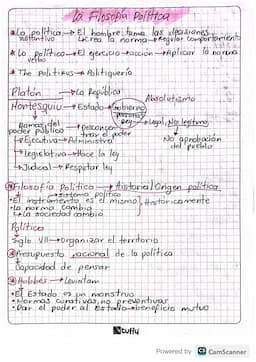 La Filosofía Política
*La política → El hombre: toma las decisiones
sustantivo Crea la norma → Regular comportamiento
*Lo político → El ejercicio → acción → Aplicar la norma
verbo
* The Politikus → Politiquería
Platón → La República
Absolutismo
Montesquieu → Estado → Gobierno
Rey → Legal, No legítimo
Ramas del poder público → Desconcentrar el poder
No aprobación del pueblo
→ Ejecutiva → Administrar
→ Legislativa → Hace la ley
→ Judicial → Respetar ley
Filosofía Política → Historia/Origen política
→ Sistema político
• El instrumento es el mismo, Históricamente
• La norma cambia
• La sociedad cambió
Políticas
Siglo VII → Organizar el territorio
Presupuesto racional de la política
Capacidad de pensar
Hobbes → Leviatam
• El Estado es un monstruo
• Normas curativas, no preventivar
• Dar el poder al Estado → beneficio mutuo
Stuffy
Powered by CS CamScanner